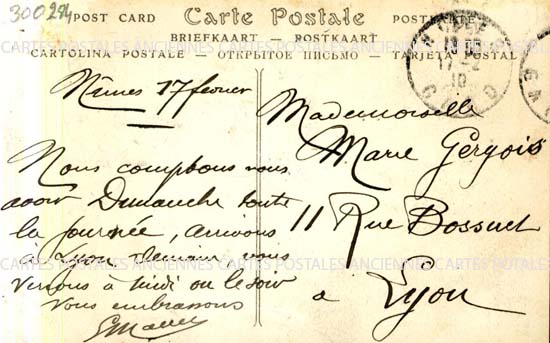 300284
POST CARD Carte Postale POSTKARTE
BRIEFKAART — POSTKAART
CARTOLINA POSTALE — ОТКРЫТОЕ ПИСЬМО — TARJETA POSTAL
CARTES POSTALES ANCIENNES CARTES POSTALES ANCIENNES
Nîmes 17 fevrier
Nous comptons vous
avoir Dimanche toute
la journée, arrivons
à Lyon demain vous
verrons à midi ou le soir
Vous embrassons
Mademoiselle
Marie Gergois
11 Rue Bossuet
à Lyon
CARTES POSTALES ANCIENNES CARTES POSTALES ANCIENNES
17 -2
10